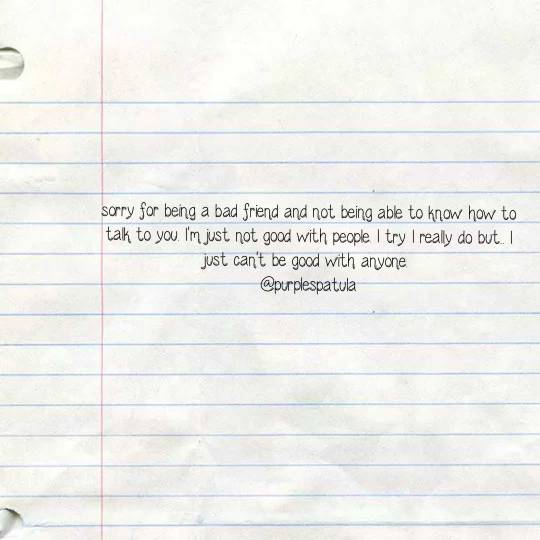 sorry for being a bad friend and not being able to know how to
talk to you. I'm just not good with people. I try I really do but... I
just can't be good with anyone.
@purplespatula